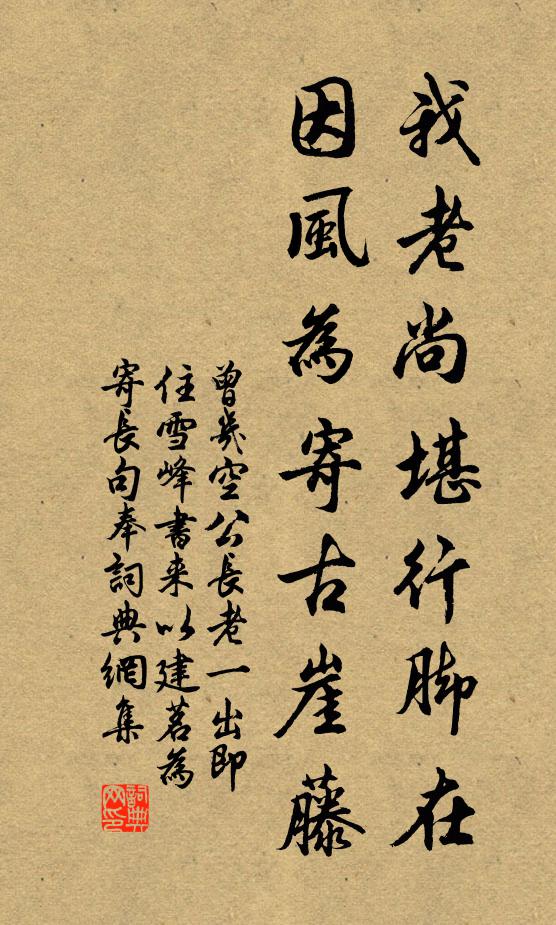 我老尚堪行脚在
因風為寄古崖藤
曾幾空公長老一出即
住雪峰書来以建茗為
寄長句奉詞典網集
詞典
网印